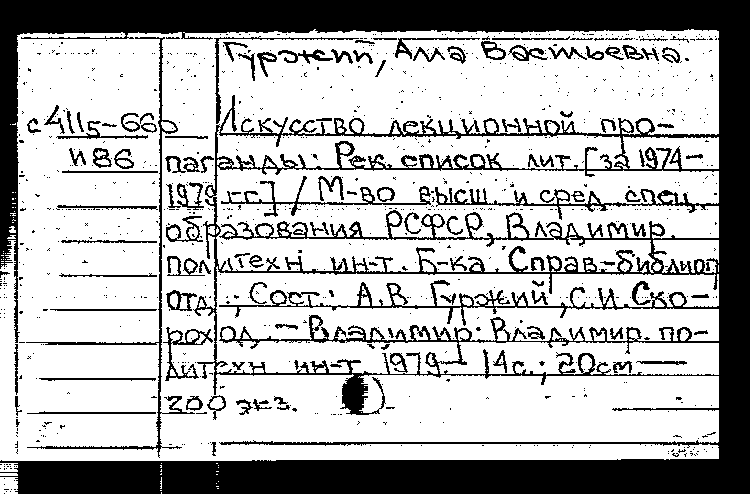 Гуржий, Алла Васильевна.
с4115-660 Искусство лекционной про-
И86 паганды: Рек. список лит. [за 1974-
1979 г.г.] / М-во высш. и сред. спец.
образования РСФСР, Владимир.
политехн. ин-т. Б-ка. Справ.-библиогр
отд.; Сост.: А.В. Гуржий, С.И. Ско-
роход. - Владимир: Владимир. по-
литехн ин-т, 1979. - 14с.; 20см. -
200 экз.